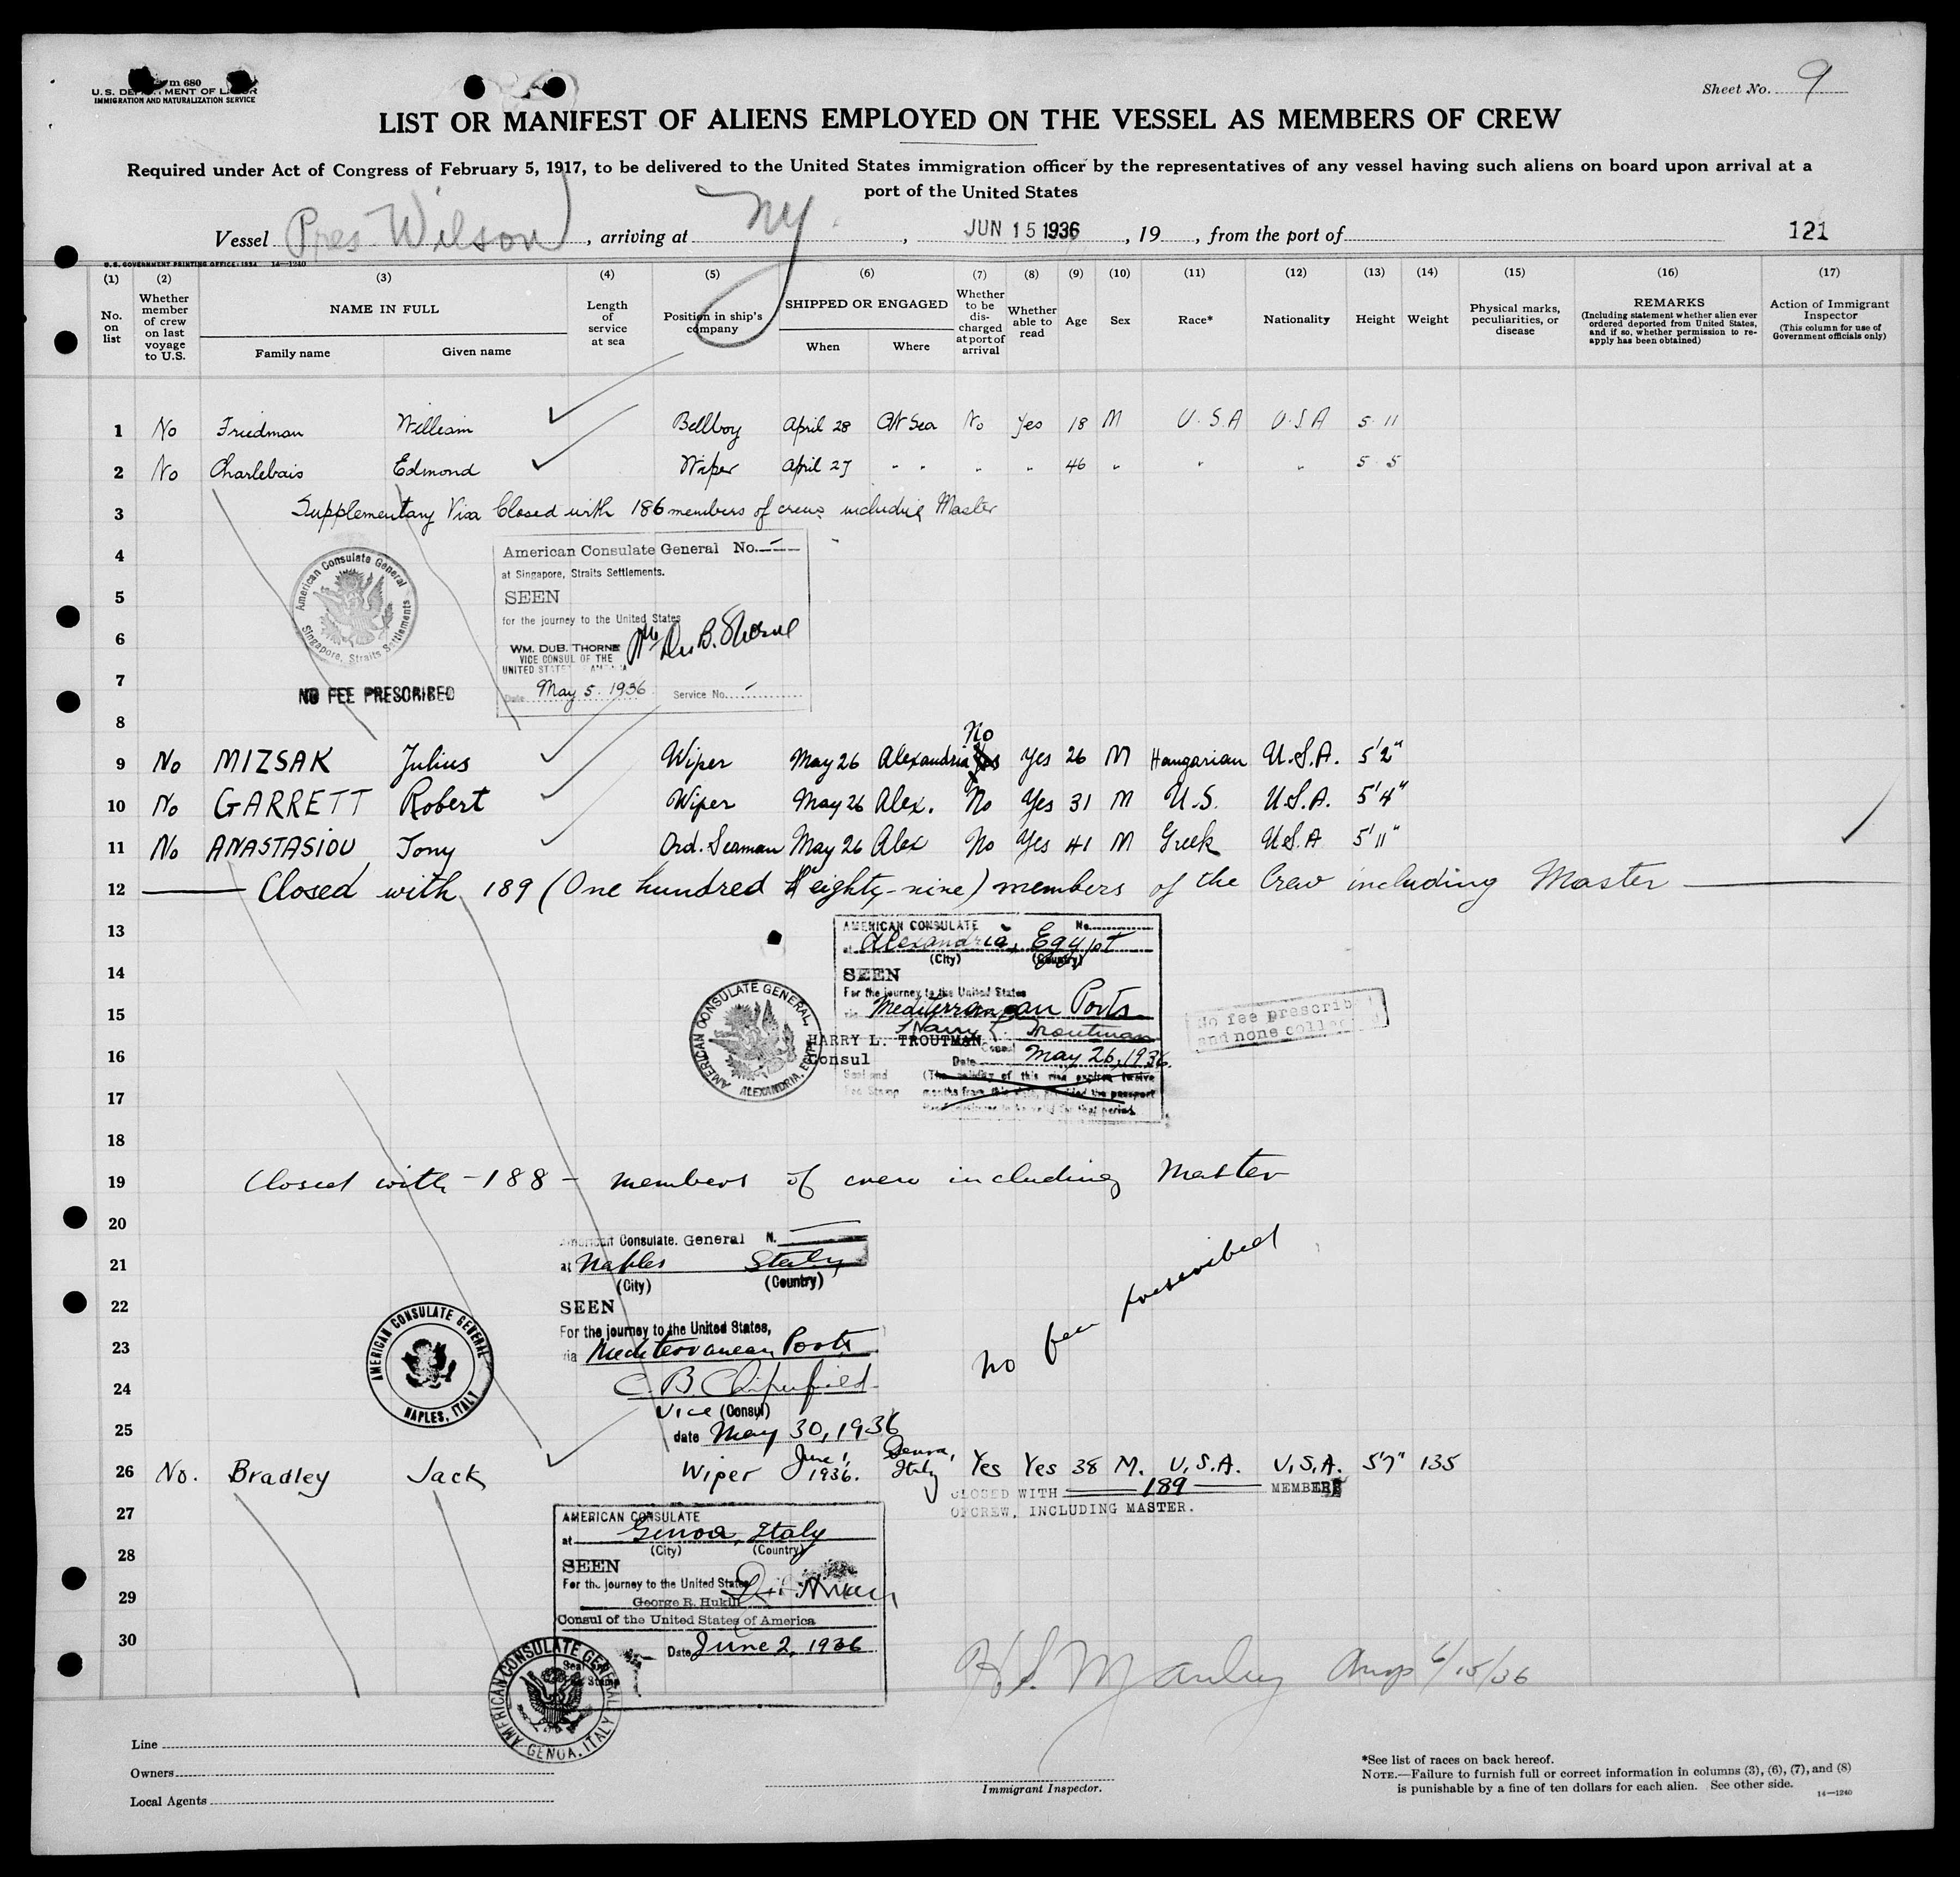 Sheet No. 9
U.S. DEPARTMENT OF LABOR
IMMIGRATION AND NATURALIZATION SERVICE
LIST OR MANIFEST OF ALIENS EMPLOYED ON THE VESSEL AS MEMBERS OF CREW
Required under Act of Congress of February 5, 1917, to be delivered to the United States immigration officer by the representatives of any vessel having such aliens on board upon arrival at a
port of the United States
Vessel Pres. Wilson, arriving at NY, JUN 15 1936, 19, from the port of 121
U.S. GOVERNMENT PRINTING OFFICE: 1934 14—1240
(1) (2) (3) (4) (5) (6) (7) (8) (9) (10) (11) (12) (13) (14) (15) (16) (17)
No. on list
Whether member of crew on last voyage to U.S.
NAME IN FULL
Family name Given name
Length of service at sea
Position in ship's company
SHIPPED OR ENGAGED
When Where
Whether to be discharged at port of arrival
Whether able to read
Age
Sex
Race*
Nationality
Height
Weight
Physical marks, peculiarities, or disease
REMARKS
(Including statement whether alien ever ordered deported from United States, and if so, whether permission to re-apply has been obtained)
Action of Immigrant Inspector
(This column for use of Government officials only)
1 No Friedman William Bellboy April 28 At Sea No Yes 18 M U.S.A U.S.A 5 11
2 No Charlebois Edmond Wiper April 27 " " " " 46 " " " 5 5
3 Supplementary Visa Closed with 186 members of crew including Master
4
American Consulate General No.
at Singapore, Straits Settlements.
5
SEEN
for the journey to the United States
6
WM. DUB. THORNE
VICE CONSUL OF THE
UNITED STATES AMERICA
Wm Du B. Thorne
7
Date May 5. 1936 Service No.
American Consulate General Singapore, Straits Settlements
NO FEE PRESCRIBED
8
9 No MIZSAK Julius Wiper May 26 Alexandria No Yes 26 M Hungarian U.S.A. 5'2"
10 No GARRETT Robert Wiper May 26 Alex. No Yes 31 M U.S. U.S.A. 5'4"
11 No ANASTASIOU Tony Ord. Seaman May 26 Alex No Yes 41 M Greek U.S.A 5'11"
12 Closed with 189 (One hundred & eighty-nine) members of the Crew including Master
13
AMERICAN CONSULATE No.
at Alexandria, Egypt
(City) (Country)
14
SEEN
For the journey to the United States
15
via Mediterranean Ports
Harry L. Troutman
HARRY L. TROUTMAN
16
Consul
Date May 26, 1936.
Seal and
Fee Stamp
(The validity of this visa expires twelve
months from this date, provided the passport
17
AMERICAN CONSULATE GENERAL, ALEXANDRIA, EGYPT
No fee prescribed
and none collected
18
19 Closed with -188- members of crew including Master
20
American Consulate. General N.
21
at Naples Italy
(City) (Country)
22
SEEN
For the journey to the United States,
23
via Mediterranean Ports
24
Vice (Consul)
25
date May 30, 1936
AMERICAN CONSULATE GENERAL NAPLES, ITALY
no fee prescribed
26 No. Bradley Jack Wiper June 1, 1936. Genoa, Italy Yes Yes 38 M. U.S.A. U.S.A. 5'7" 135
CLOSED WITH 189 MEMBERS
OF CREW, INCLUDING MASTER.
27
AMERICAN CONSULATE
at Genoa, Italy
(City) (Country)
28
SEEN
For the journey to the United States
29
George R. Hukill
Consul of the United States of America
30
Date June 2, 1936
Seal and
Fee Stamp
AMERICAN CONSULATE GENERAL GENOA, ITALY
6/15/36
Line
Owners
Local Agents
Immigrant Inspector.
*See list of races on back hereof.
NOTE.—Failure to furnish full or correct information in columns (3), (6), (7), and (8)
is punishable by a fine of ten dollars for each alien. See other side.
14—1240